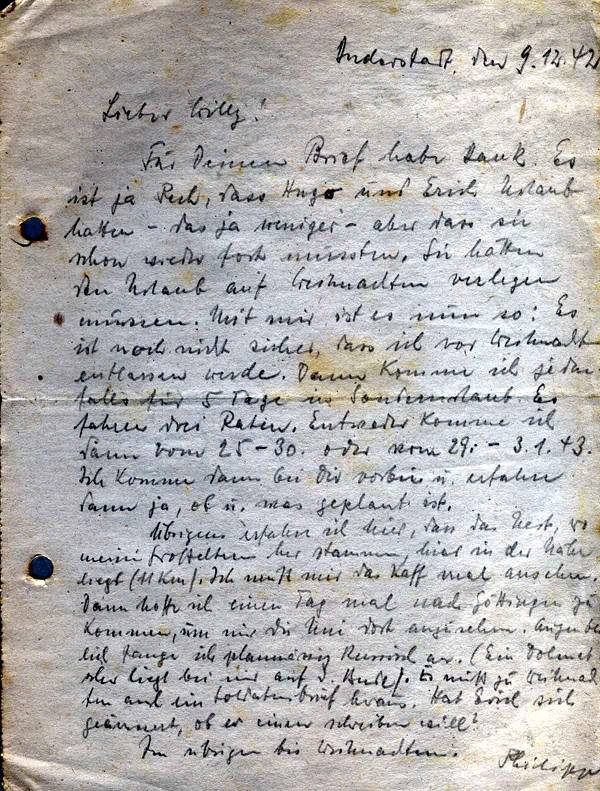 Duderstadt, den 9.12.42
Lieber Willy!
Für Deinen Brief habe Dank. Es
ist ja Pech, dass Hugo und Erich Urlaub
hatten – das ja weniger – aber dass sie
schon wieder fort mussten. Sie hätten
den Urlaub auf Weihnachten verlegen
müssen. Mit mir ist es nun so: Es
ist noch nicht sicher, dass ich vor Weihnacht
entlassen werde. Dann komme ich jeden
falls für 5 Tage in Sonderurlaub. Es
fahren drei Raten. Entweder komme ich
dann vom 25–30. oder vom 29. – 3.1.43.
Ich komme dann bei Dir vorbei u. erfahre
dann ja, ob u. was geplant ist.
Übrigens erfahre ich hier, dass das Nest, wo
meine Großeltern her stammen, hier in der Nähe
liegt (11 km). Ich muß mir das Kaff mal ansehen.
Dann hoffe ich einen Tag mal nach Göttingen zu
kommen, um mir die Uni dort anzusehen. Augenb
lich fange ich planmässig Russisch an. (Ein Dolmet
scher liegt bei mir auf d. Bude). Es muß zu Weihnach
ten auch ein Soldatenbrief heraus. Hat Erich sich
geäussert, ob er einen schreiben will?
Im übrigen bis Weihnachten.
Philipp